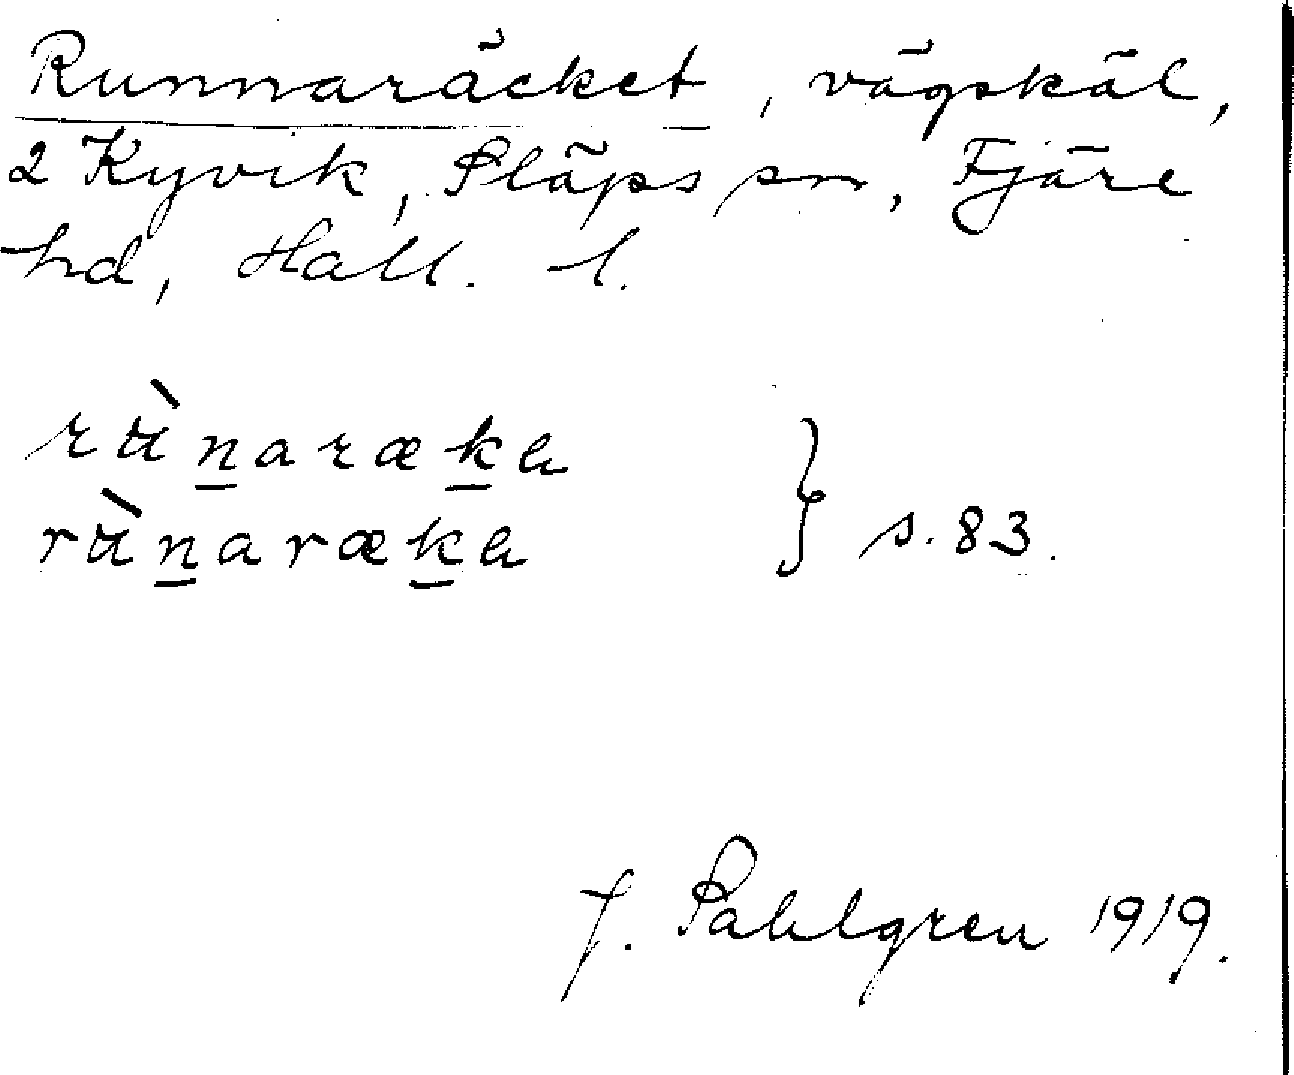 Runnaräcket, vägskäl,
2 Kyvik, Släps sn, Fjäre
hd, Hall. l.
rùnaræka
rùnaræka } s. 83.
J. Sahlgren 1919.